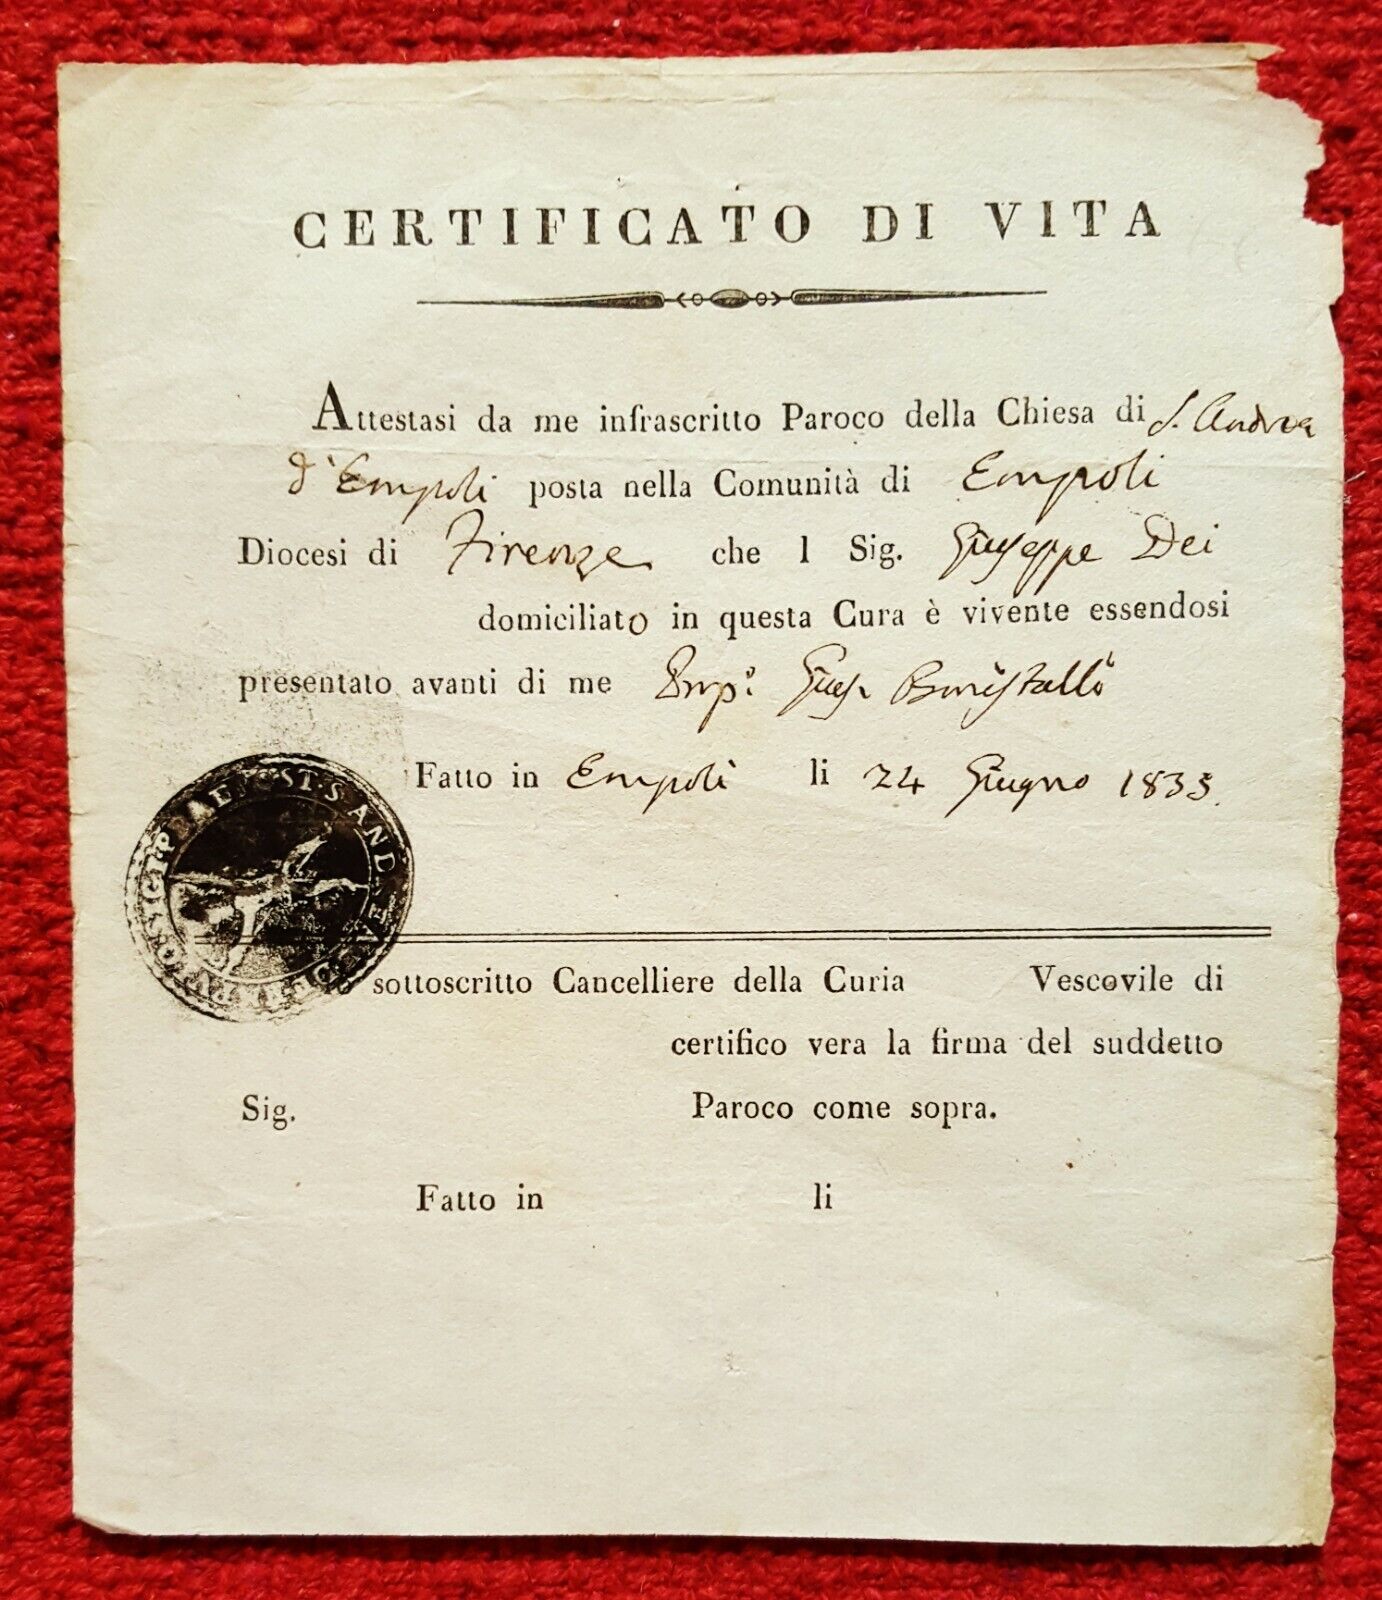 CERTIFICATO DI VITA
Attestasi da me infrascritto Paroco della Chiesa di S. Andrea
d'Empoli posta nella Comunità di Empoli
Diocesi di Firenze che l Sig. Giuseppe Dei
domiciliato in questa Cura è vivente essendosi
presentato avanti di me
Fatto in Empoli li 24 Giugno 1833.
S. ANDREAE
sottoscritto Cancelliere della Curia Vescovile di
certifico vera la firma del suddetto
Sig. Paroco come sopra.
Fatto in li